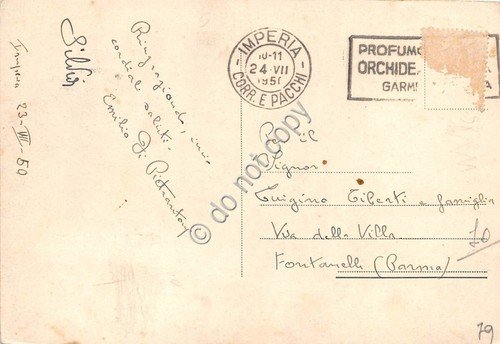 Imperia 23-VII-50
Silvio
Ringraziando, invio
cordiali saluti.
Emilio Di Pietrantoni
IMPERIA
10-11
24 VII
1950
CORR. E PACCHI
PROFUMO
ORCHIDE A
GARM A
Per il
Signor
Luigino Ciberti e famiglia
Via della Villa
Fontanelle (Parma)
10
79
© do not copy